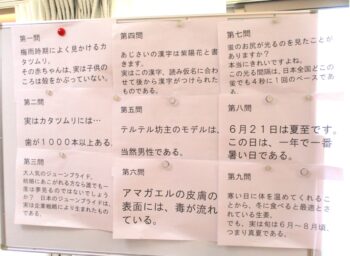 第一問
梅雨時期によく見かけるカ
タツムリ。
その赤ちゃんは、実は子供の
ころは殻をかぶっていない。
第二問
実はカタツムリには…
歯が1000本以上ある。
第三問
大人気のジューンブライド。
結婚にあこがれる方なら誰でも一
度は夢見るのではないでしょう
か？ 日本のジューンブライドは、
実は企業戦略により生まれたもの
である。
第四問
あじさいの漢字は紫陽花と書
きます。
実はこの漢字、読み仮名に合わ
せて後から漢字がつけられた
ものである。
第五問
テルテル坊主のモデルは、
当然男性である。
第六問
アマガエルの皮膚の
表面には、毒が流れ
ている。
第七問
蛍のお尻が光るのを見たことが
ありますか？
本当にきれいですよね。
この光る間隔は、日本全国どこの
蛍でも4秒に1回のペースであ
る。
第八問
6月21日は夏至です。
この日は、一年で一番
暑い日である。
第九問
寒い日に体を温めてくれるこ
とから、冬に食べると最適とさ
れている生姜。
でも、実は旬は6月～8月頃、
つまり真夏である。